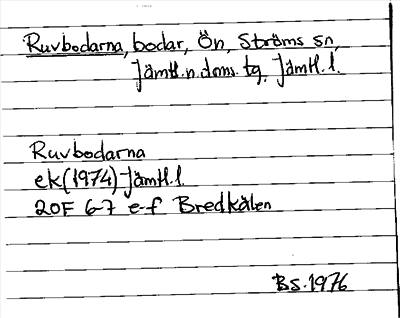 Ruvbodarna, bodar, Ön, Ströms sn,
Jämtl.n.doms.tg, Jämtl.l.
Ruvbodarna
ek(1974) Jämtl.l.
20F 6-7 e-f Bredkälen
BS.1976